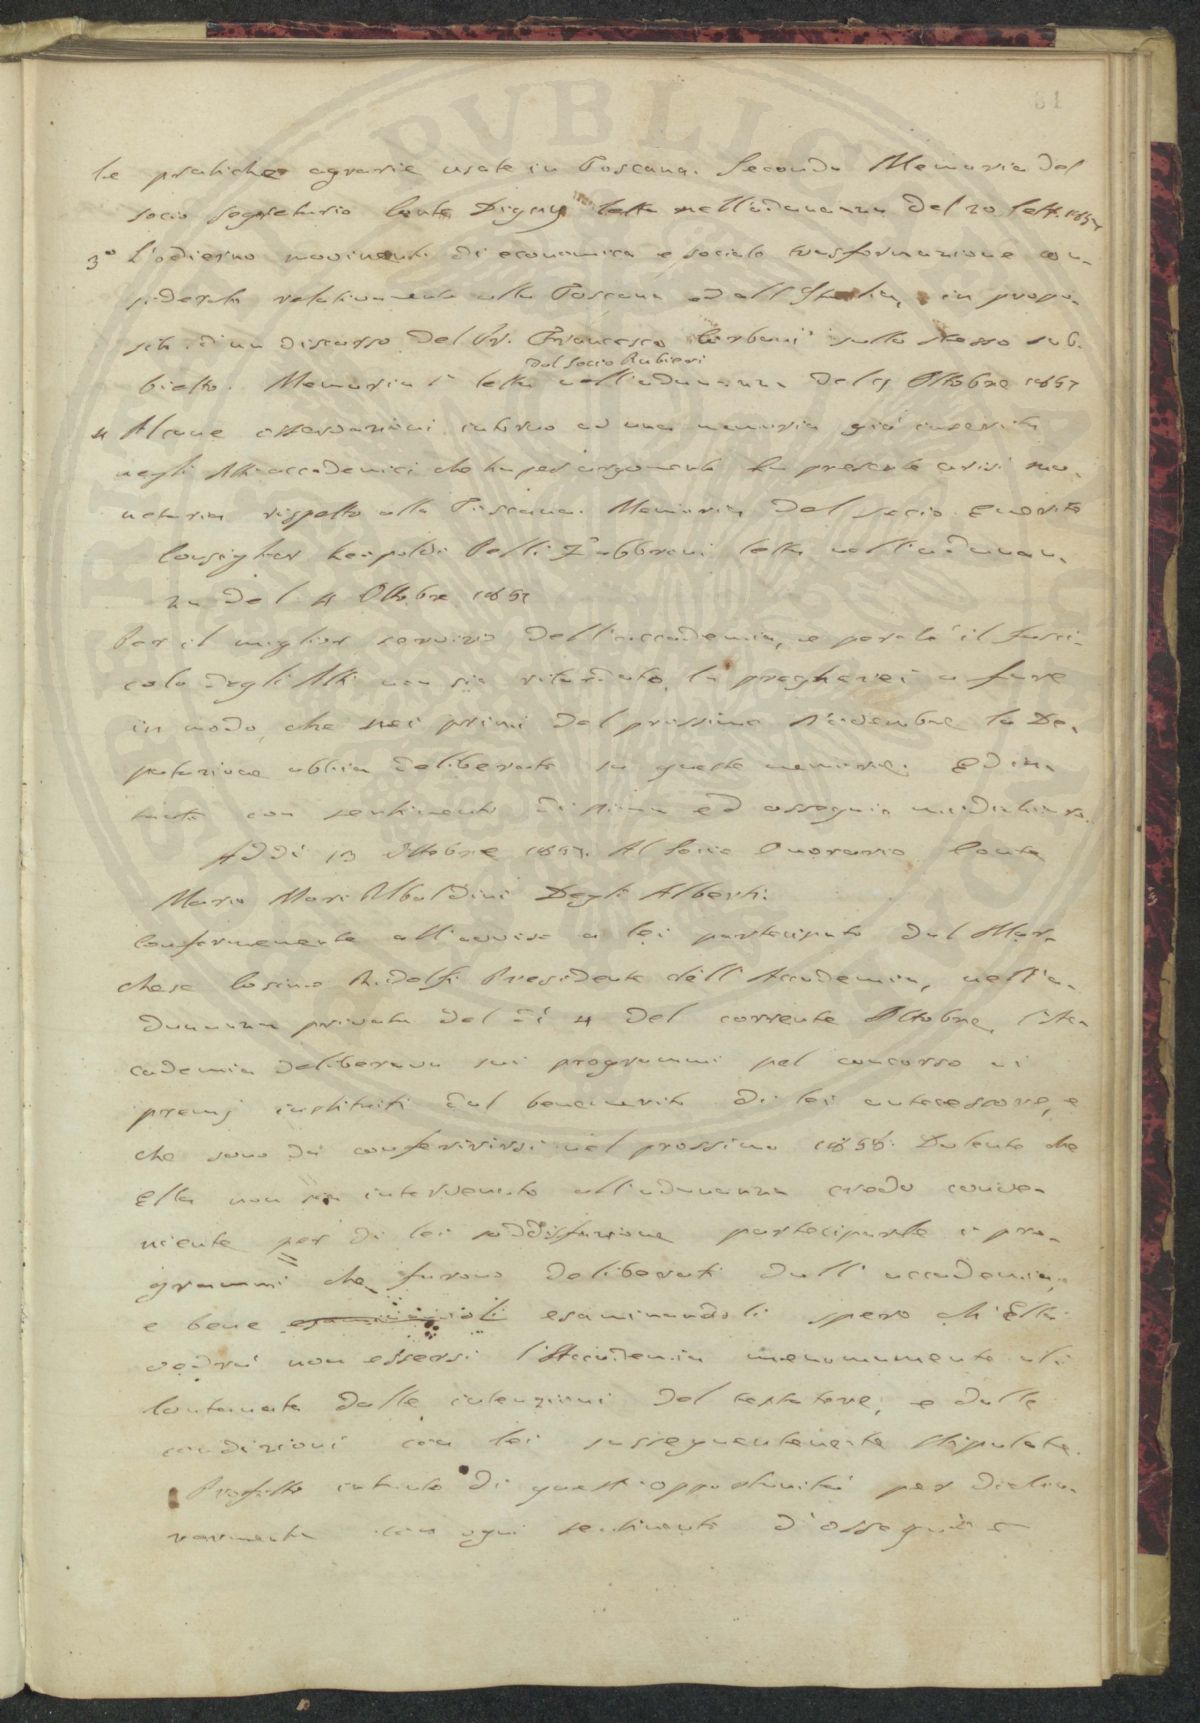 61
le pratiche agrarie usate in Toscana. Seconda Memoria del
socio segretario Conte Digny letta nell'adunanza del 20 Sett. 1857
3° L'odierno movimento di economica e sociale trasformazione con-
siderato relativamente alla Toscana ed all'Italia, in propo-
sito d'un discorso del Pr. Francesco Corbani sullo stesso sub-
dal Socio Rubieri
bietto. Memoria letta nell'adunanza del 4 Ottobre 1857
4 Alcune osservazioni intorno ad una memoria già inserita
negli Atti accademici che ha per argomento la presente crisi mo-
netaria rispetto alla Toscana. Memoria del socio Emerito
Consiglier Leopoldo Pelli Fabbroni letta nell'adunan-
za del 4 Ottobre 1857
Per il miglior servizio dell'accademia, e perchè il fasci-
colo degli Atti non sia ritardato, la pregherei a fare
in modo, che nei primi del prossimo Novembre la De-
putazione abbia deliberato su queste memorie. Ed in-
tanto con sentimento di stima ed ossequio mi dichiaro.
Addì 13 Ottobre 1857. Al Socio Onorario Conte
Mario Mori Ubaldini Degli Alberti.
Conformemente all'avviso a lei partecipato dal Mar-
chese Cosimo Ridolfi Presidente dell'Accademia, nell'a-
dunanza privata del dì 4 del corrente Ottobre, l'Ac-
cademia deliberava sui programmi pel concorso ai
premj instituiti dal benemerito di lei antecessore, e
che sono da conferirsi nel prossimo 1858. Dolente che
Ella non sia intervenuto all'adunanza credo conve-
niente per di lei soddisfazione parteciparle i pro-
grammi che furono deliberati dall'accademia,
e bene esaminandoli spero ch'Ella
vedrà non essersi l'Accademia menomamente al-
lontanata dalle intenzioni del testatore, e dalle
condizioni con lei susseguentemente stipulate.
Profitto intanto di quest'opportunità per dichia-
rarmente con ogni sentimento d'ossequio